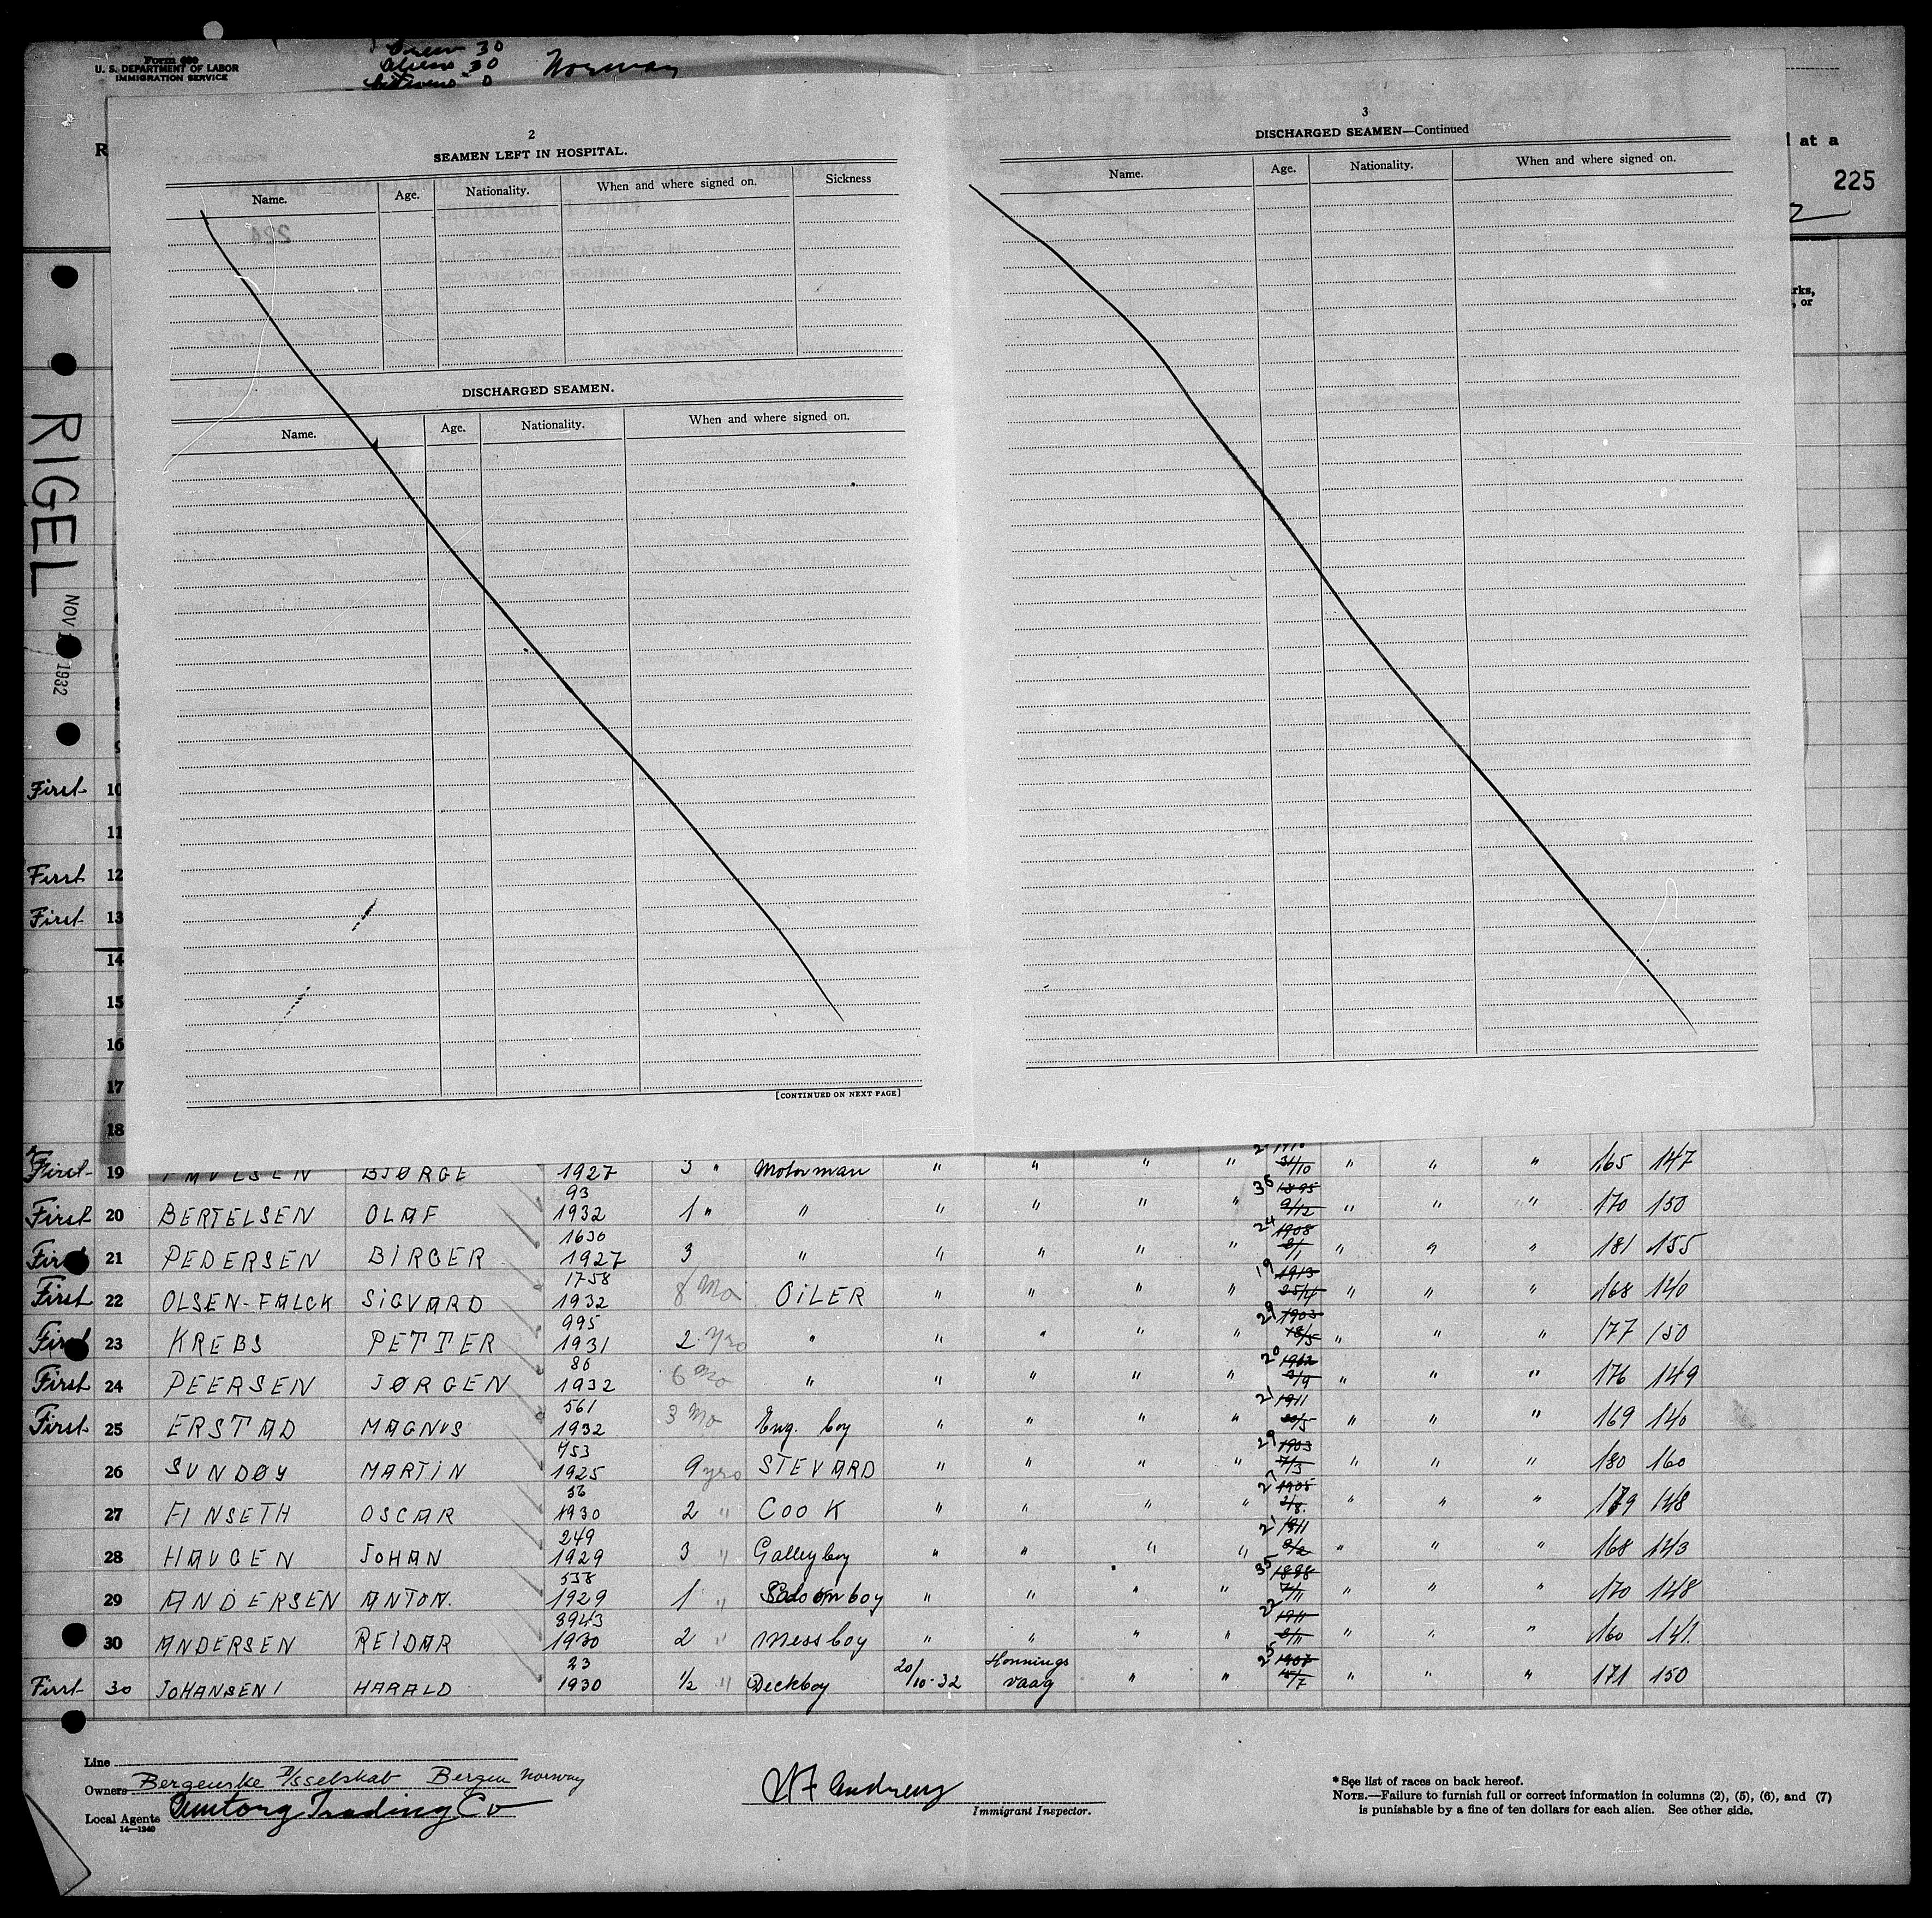 Form 680
U. S. DEPARTMENT OF LABOR
IMMIGRATION SERVICE
Crew 30
Aliens 30
Citizens 0
Norway
R
at a
225
rks,
, or
RIGEL
NOV 1 1932
2
SEAMEN LEFT IN HOSPITAL.
Name. Age. Nationality. When and where signed on. Sickness
224
DISCHARGED SEAMEN.
Name. Age. Nationality. When and where signed on.
[CONTINUED ON NEXT PAGE]
3
DISCHARGED SEAMEN—Continued
Name. Age. Nationality. When and where signed on.
First 10
11
First 12
First 13
14
15
16
17
18
First 19 BJØRGE 1927 3 " Motorman " " " " 31/10 " " " 165 147
First 20 BERTELSEN OLAF 93 1932 1 " " " " " " 36 1895 9/12 " " " 170 150
First 21 PEDERSEN BIRGER 1630 1927 3 " " " " " 24 1908 8/11 " " " 181 155
First 22 OLSEN-FALCK SIGVARD 1758 1932 8 Mo OILER " " " " 19 1913 25/4 " " " 168 140
First 23 KREBS PETTER 995 1931 2 yrs " " " " " 29 1903 18/5 " " " 177 150
First 24 PEERSEN JØRGEN 86 1932 6 Mo " " " " " 20 1912 3/9 " " " 176 149
First 25 ERSTAD MAGNUS 561 1932 3 Mo Eng. boy " " " " 21 1911 20/5 " " " 169 140
26 SUNDØY MARTIN 453 1925 9 yrs STEVARD " " " " 29 1903 7/3 " " " 180 160
27 FINSETH OSCAR 56 1930 2 " COOK " " " " 27 1905 2/8 " " " 179 148
28 HAUGEN JOHAN 249 1929 3 " Galleyboy " " " " 21 1911 8/2 " " " 168 143
29 ANDERSEN ANTON. 538 1929 1 " Saloonboy " " " " 35 1898 7/11 " " " 170 148
30 ANDERSEN REIDAR 3943 1930 2 " Messboy " " " " 22 1911 8/11 " " " 160 141
First 30 JOHANSEN HARALD 23 1930 1/2 " Deckboy 20/10-32 Honningsvaag " " 25 1907 " " " 171 150
Line
Owners Bergenske D/Sselskab Bergen Norway
Local Agents Amtorg Trading Co
14—1240
Immigrant Inspector.
*See list of races on back hereof.
NOTE.—Failure to furnish full or correct information in columns (2), (5), (6), and (7)
is punishable by a fine of ten dollars for each alien. See other side.